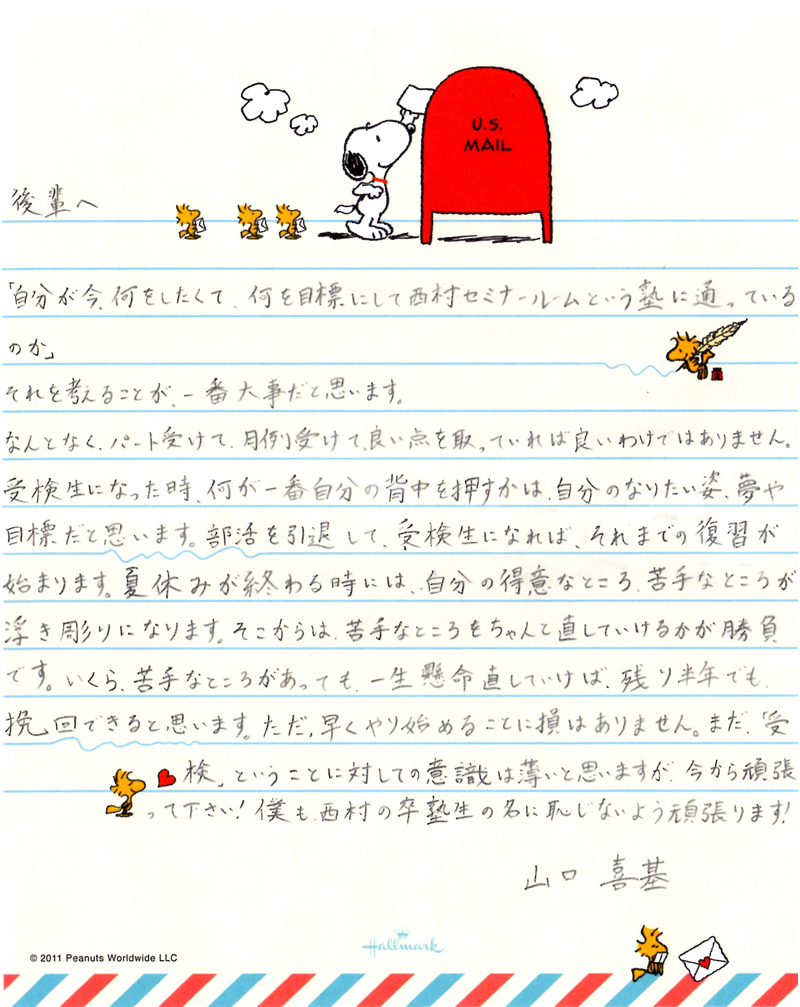 U.S.
MAIL
後輩へ
「自分が今、何をしたくて、何を目標にして西村セミナールームという塾に通っている
のか」
それを考えることが、一番大事だと思います。
なんとなく、パート受けて、月例受けて、良い点を取っていれば良いわけではありません。
受検生になった時、何が一番自分の背中を押すかは、自分のなりたい姿、夢や
目標だと思います。部活を引退して、受検生になれば、それまでの復習が
始まります。夏休みが終わる時には、自分の得意なところ、苦手なところが
浮き彫りになります。そこからは、苦手なところをちゃんと直していけるかが勝負
です。いくら、苦手なところがあっても、一生懸命直していけば、残り半年でも、
挽回できると思います。ただ、早くやり始めることに損はありません。まだ、「受
検」ということに対しての意識は薄いと思いますが、今から頑張
って下さい!僕も、西村の卒塾生の名に恥じないよう頑張ります!
山口 喜基
Hallmark
© 2011 Peanuts Worldwide LLC